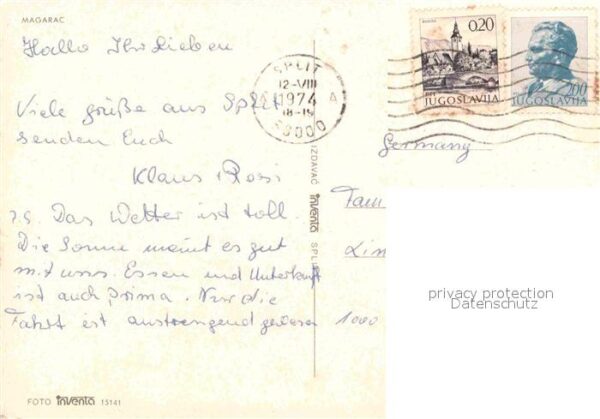 MAGARAC
Hallo Ihr Lieben
Viele Grüße aus Split
senden Euch
Klaus + Rosi
P.S. Das Wetter ist toll.
Die Sonne meint es gut
mit uns. Essen und Unterkunft
ist auch prima. Nur die
Fahrt ist anstrengend gewesen
FOTO inventa 15141
IZDAVAČ inventa SPLIT
SPLIT
12-VIII
1974
18-19
0.20
JUGOSLAVIJA
2.00
JUGOSLAVIJA
Germany
Fam
Lin
1000
privacy protection
Datenschutz